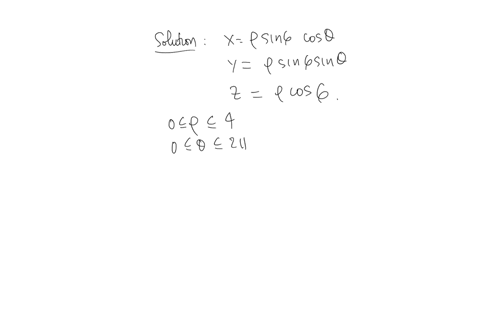 Solution : X = ρ sin6 cosθ
Y = ρ sin6 sinθ
Z = ρ cos6 .
0 ≤ ρ ≤ 4
0 ≤ θ ≤ 2π